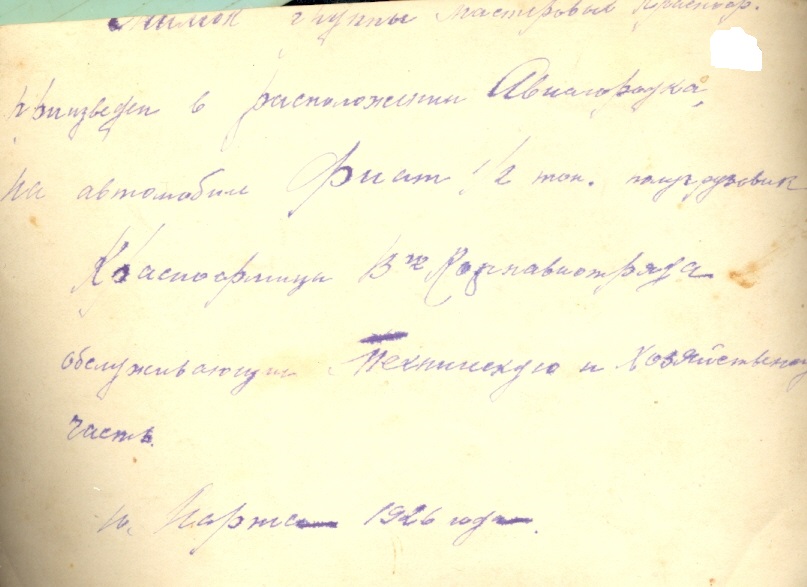 Снимок группы мастеровых Красноар.
произведен в расположении Авиагородка
на автомобиле Фиат 1/2 тон. полугрузовик
Красноармейцы 13го Корпавиотряда
обслуживающие Техническую и Хозяйственную
часть.
10. Марта 1926 года.